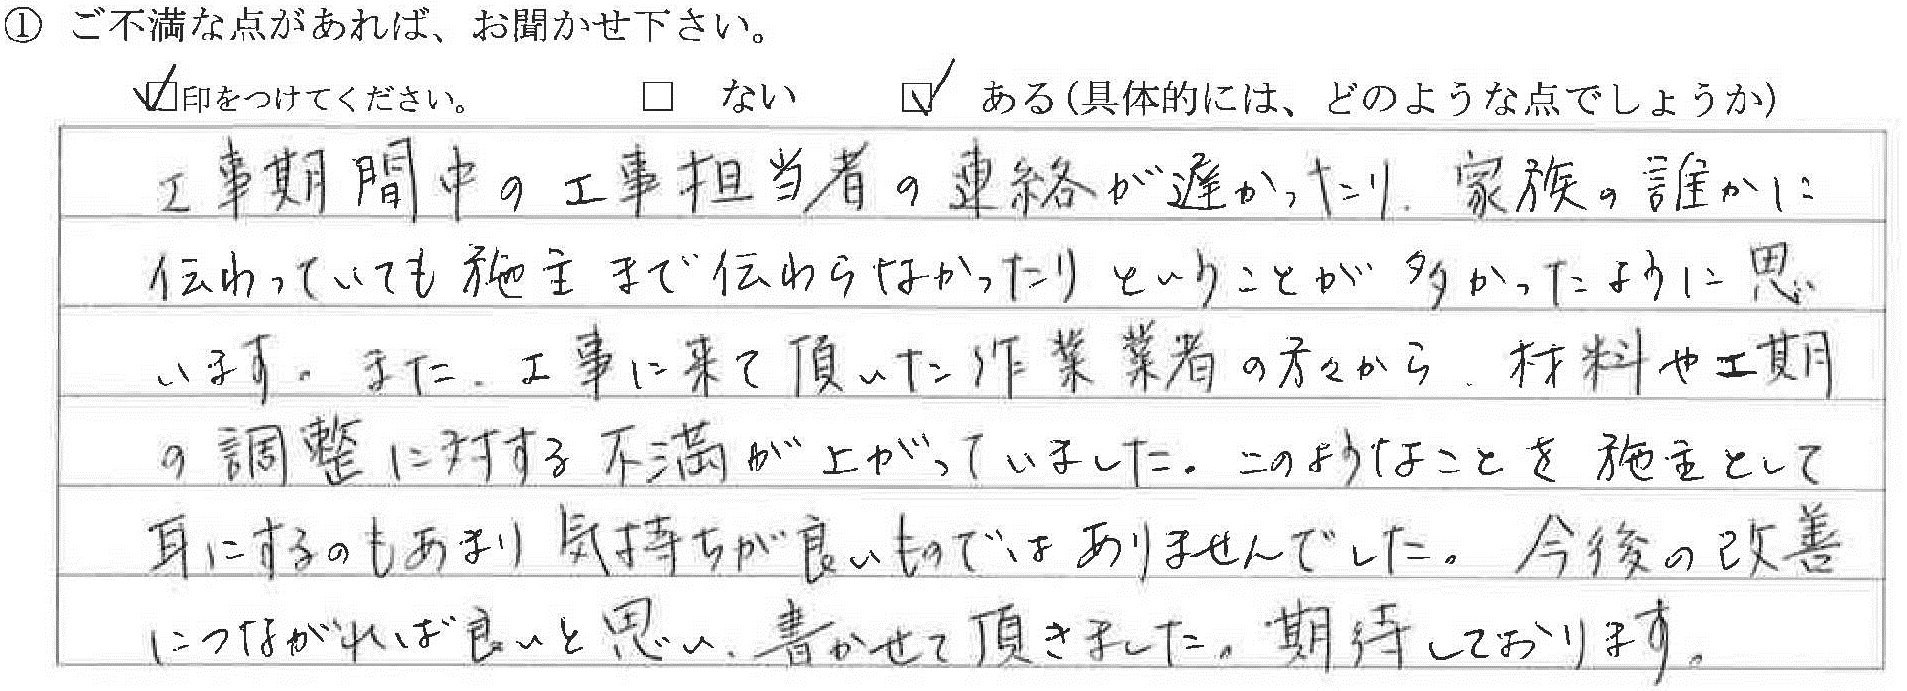 ① ご不満な点があれば、お聞かせ下さい。
☑印をつけてください。 □ ない ☑ ある(具体的には、どのような点でしょうか)
工事期間中の工事担当者の連絡が遅かったり、家族の誰かに
伝わっていても施主まで伝わらなかったりということが多かったように思
います。また、工事に来て頂いた作業業者の方々から、材料や工期
の調整に対する不満が上がっていました。このようなことを施主として
耳にするのもあまり気持ちが良いものではありませんでした。今後の改善
につながれば良いと思い、書かせて頂きました。期待しております。